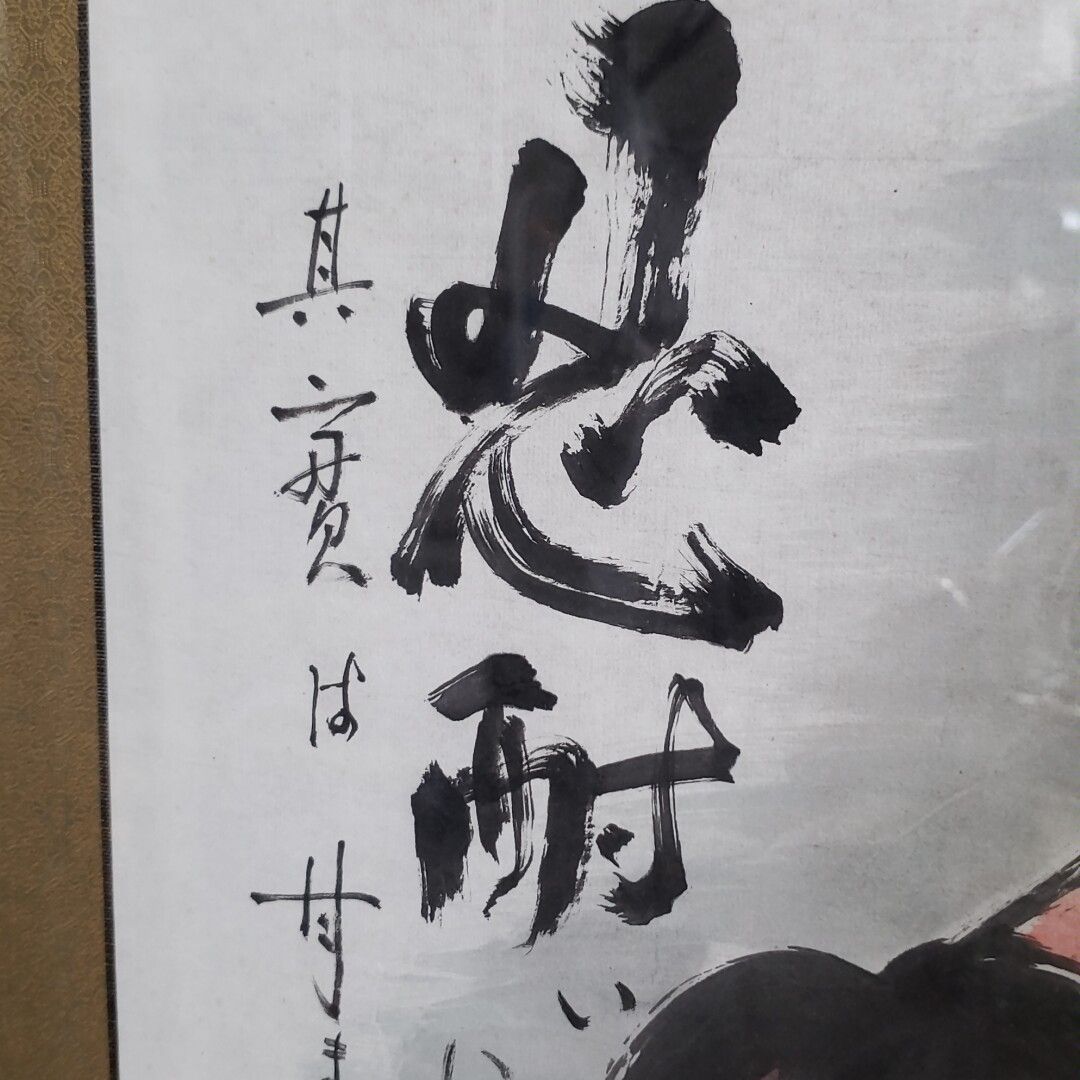 忍耐
其實は甘